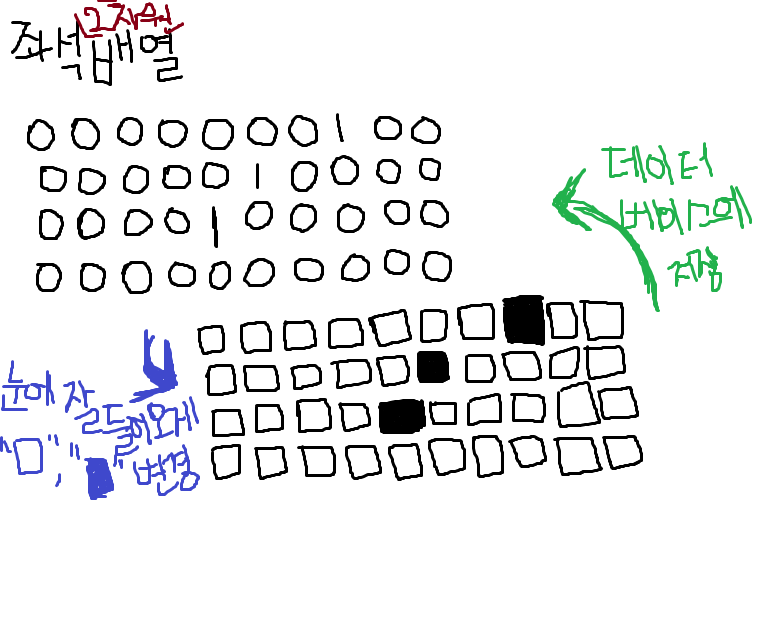 2차원
좌석 배열
0 0 0 0 0 0 0 1 0 0
0 0 0 0 0 1 0 0 0 0
0 0 0 0 1 0 0 0 0 0
0 0 0 0 0 0 0 0 0 0
데이터
베이스에
저장
□ □ □ □ □ □ □ ■ □ □
□ □ □ □ □ ■ □ □ □ □
□ □ □ □ ■ □ □ □ □ □
□ □ □ □ □ □ □ □ □ □
눈에 잘 들어오게
"□", "■" 변경